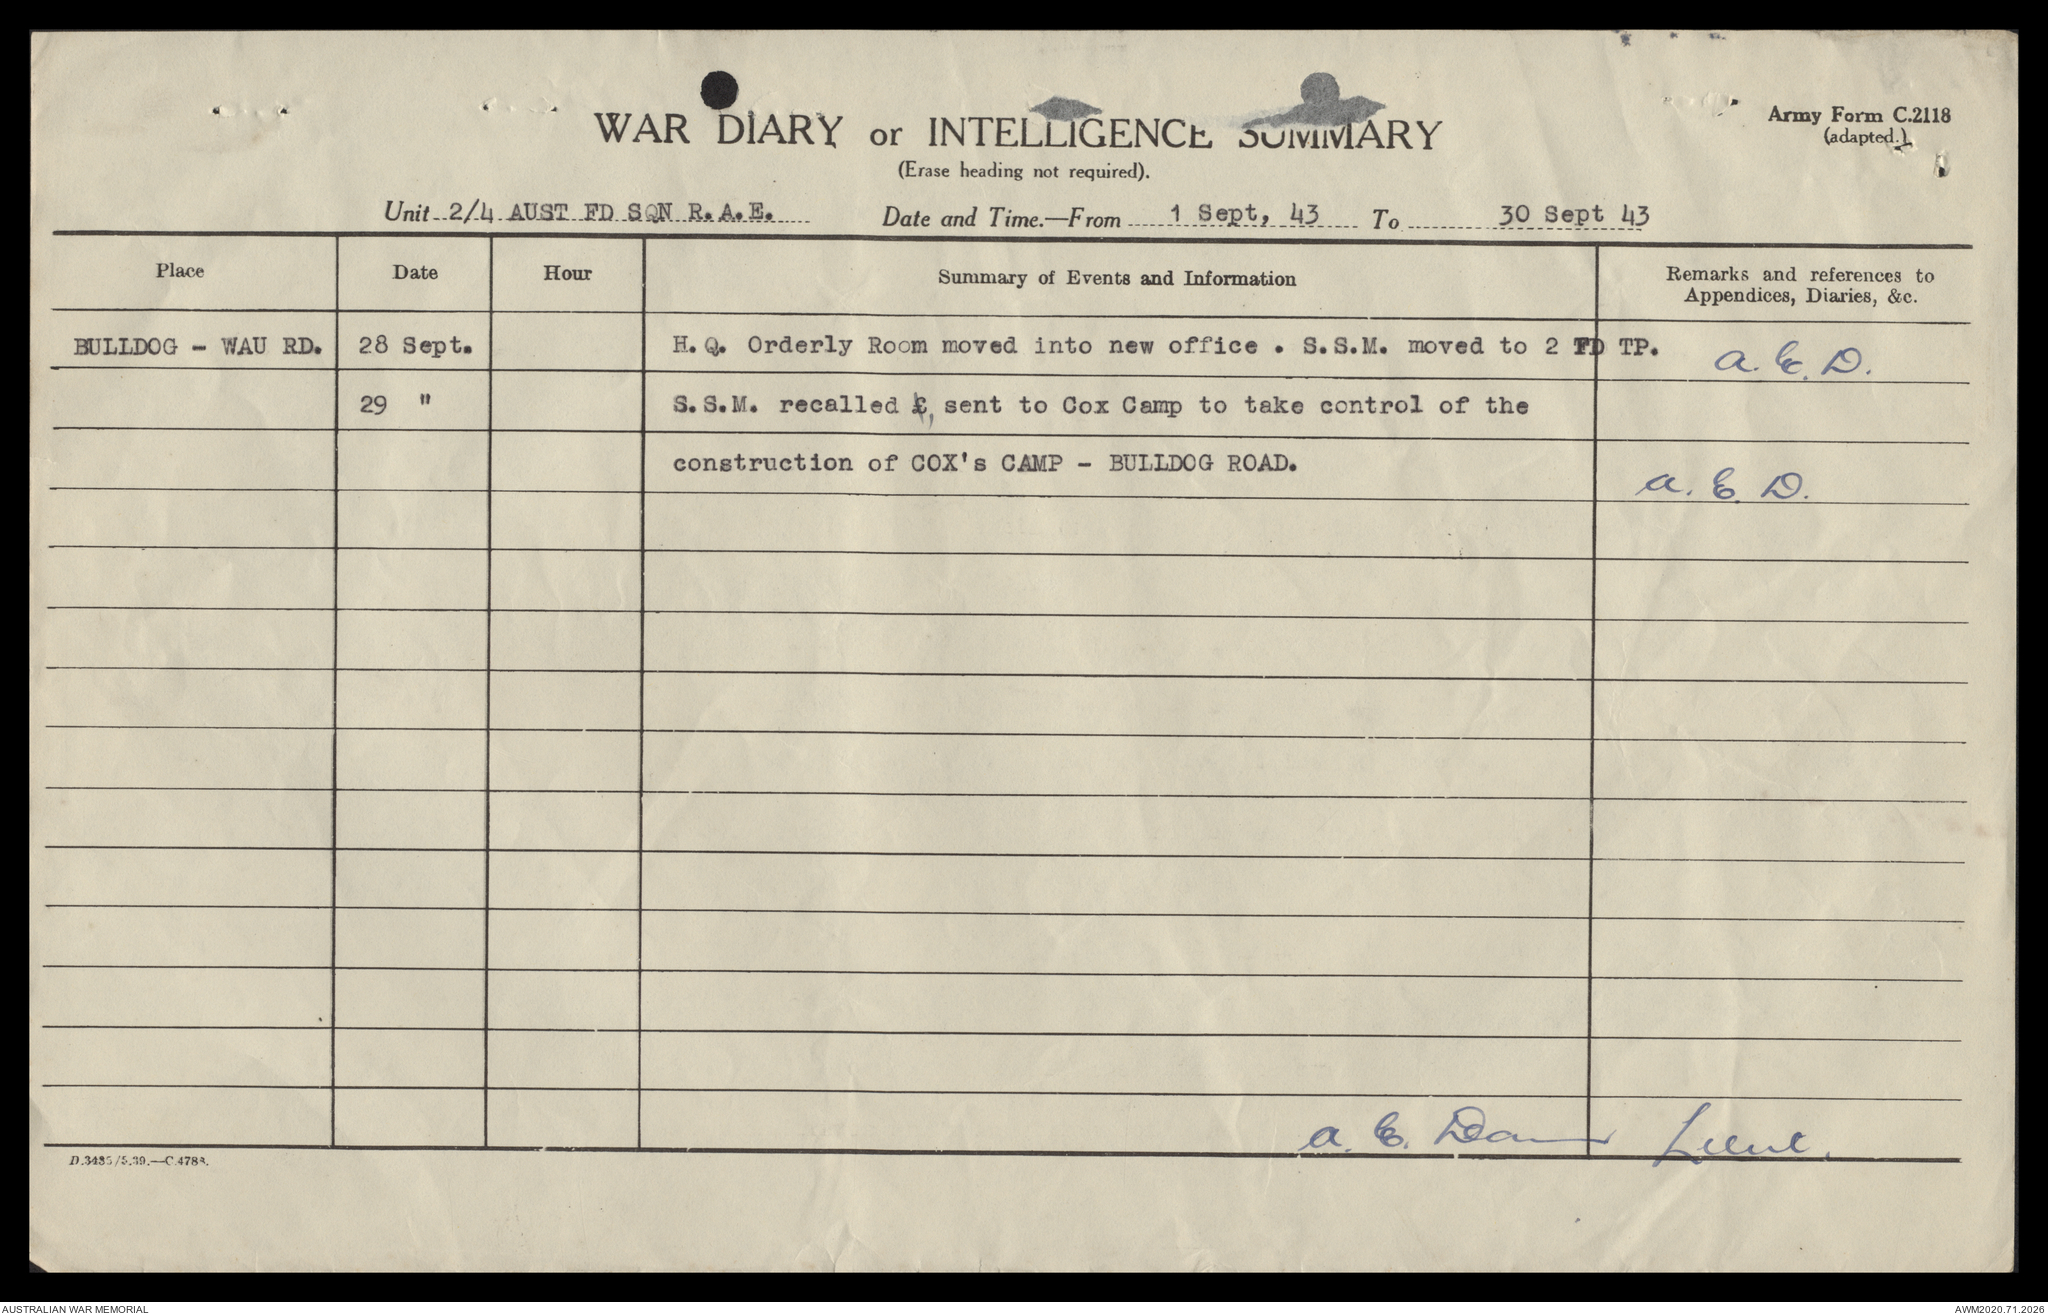 WAR DIARY or INTELLIGENCE SUMMARY
(Erase heading not required).
Army Form C.2118
(adapted.)
Unit 2/4 AUST FD SQN R.A.E. Date and Time.—From 1 Sept, 43 To 30 Sept 43
Place Date Hour Summary of Events and Information Remarks and references to Appendices, Diaries, &c.
BULLDOG - WAU RD. 28 Sept. H.Q. Orderly Room moved into new office . S.S.M. moved to 2 FD TP. A. E. D.
29 " S.S.M. recalled &, sent to Cox Camp to take control of the
construction of COX's CAMP - BULLDOG ROAD.
A. E. D.
A. E. Lieut.
AUSTRALIAN WAR MEMORIAL
AWM2020.71.2026